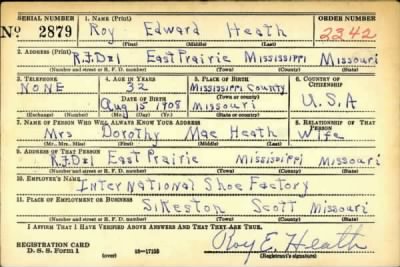 SERIAL NUMBER 1. NAME (Print) ORDER NUMBER
No 2879 Roy Edward Heath 2342
(First) (Middle) (Last)
2. ADDRESS (Print)
R.F.D#1 East Prairie Mississippi Missouri
(Number and street or R. F. D. number) (Town) (County) (State)
3. TELEPHONE 4. AGE IN YEARS 5. PLACE OF BIRTH 6. COUNTRY OF CITIZENSHIP
NONE 32 Mississippi County
DATE OF BIRTH (Town or county)
Aug 15 1908 Missouri U.S.A
(Exchange) (Number) (Mo.) (Day) (Yr.) (State or country)
7. NAME OF PERSON WHO WILL ALWAYS KNOW YOUR ADDRESS 8. RELATIONSHIP OF THAT PERSON
Mrs Dorothy Mae Heath Wife
(Mr., Mrs., Miss) (First) (Middle) (Last)
9. ADDRESS OF THAT PERSON
R.F.D#1 East Prairie Mississippi Missouri
(Number and street or R. F. D. number) (Town) (County) (State)
10. EMPLOYER'S NAME
International Shoe Factory
11. PLACE OF EMPLOYMENT OR BUSINESS
Sikeston Scott Missouri
(Number and street or R. F. D. number) (Town) (County) (State)
I AFFIRM THAT I HAVE VERIFIED ABOVE ANSWERS AND THAT THEY ARE TRUE.
Roy E. Heath
REGISTRATION CARD
D. S. S. Form 1 (over) 16—17105 (Registrant's signature)